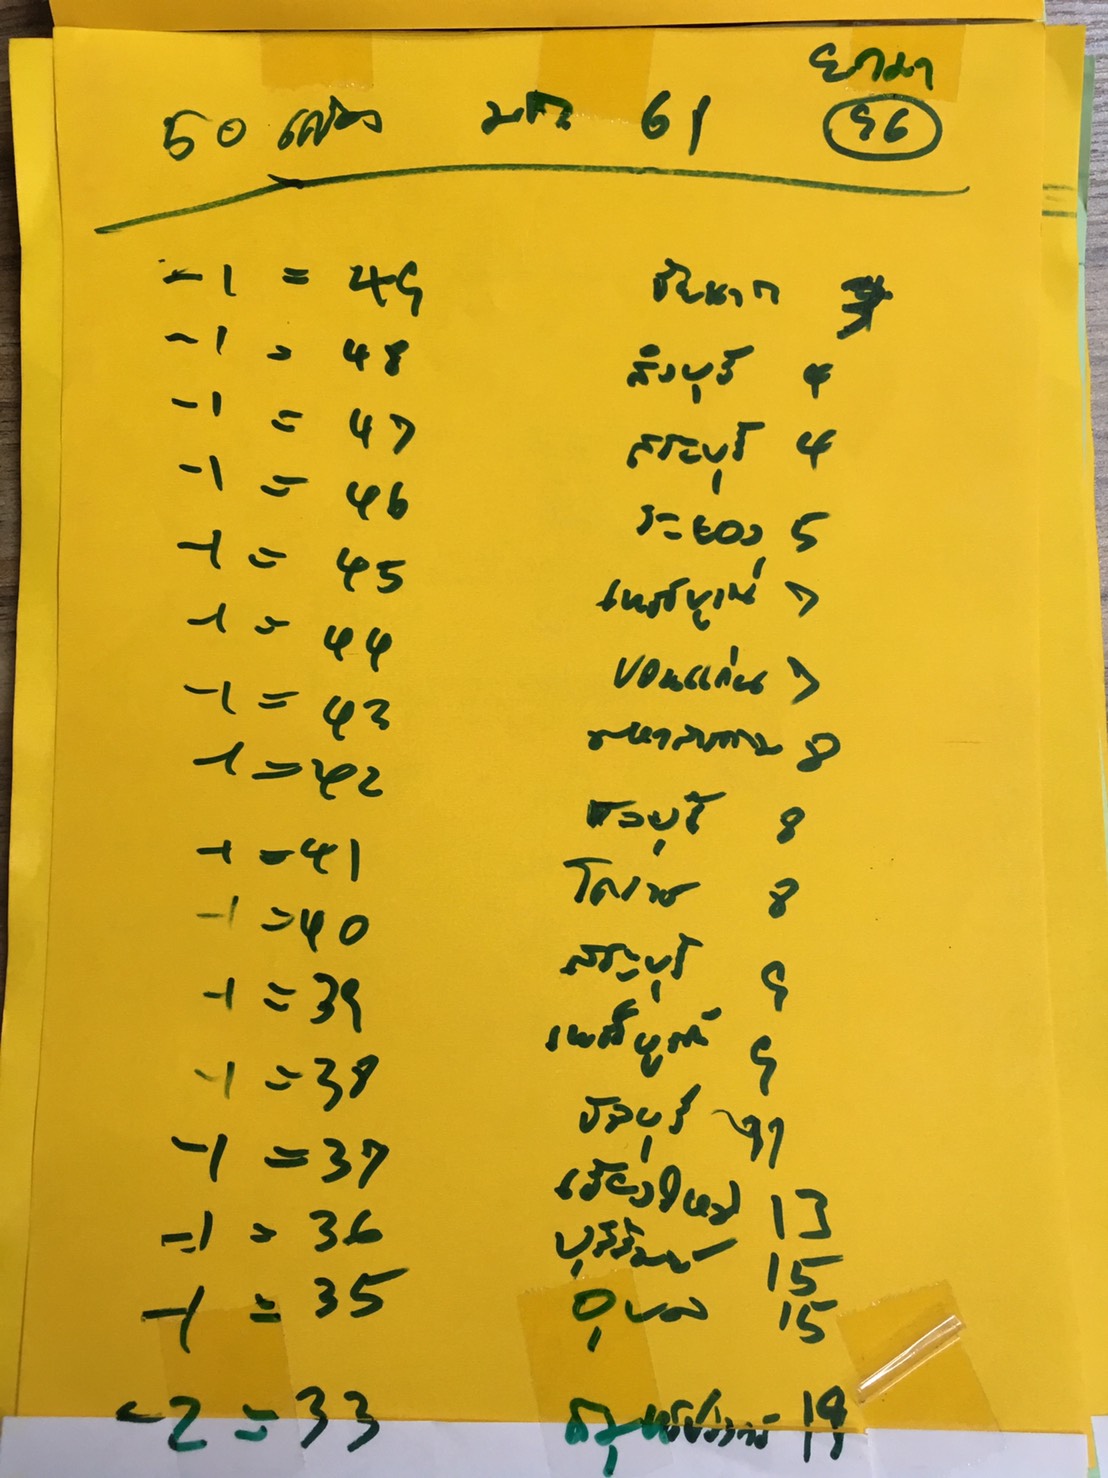 50 เครื่อง มค 61 96
-1 = 49 ชัยนาท
-1 = 48 สิงบุรี 4
-1 = 47 สระบุรี 4
-1 = 46 ระยอง 5
-1 = 45 เพชรบูรณ์ 7
-1 = 44 ขอนแก่น 7
-1 = 43 มหาสารคาม 8
-1 = 42 ชลบุรี 8
-1 = 41 โคราช 8
-1 = 40 สระบุรี 9
-1 = 39 เพชรบูรณ์ 9
-1 = 38 ชลบุรี 11
-1 = 37 เชียงใหม่ 13
-1 = 36 บุรีรัมย์ 15
-1 = 35 อุบล 15
-2 = 33 สมุทรปราการ 19